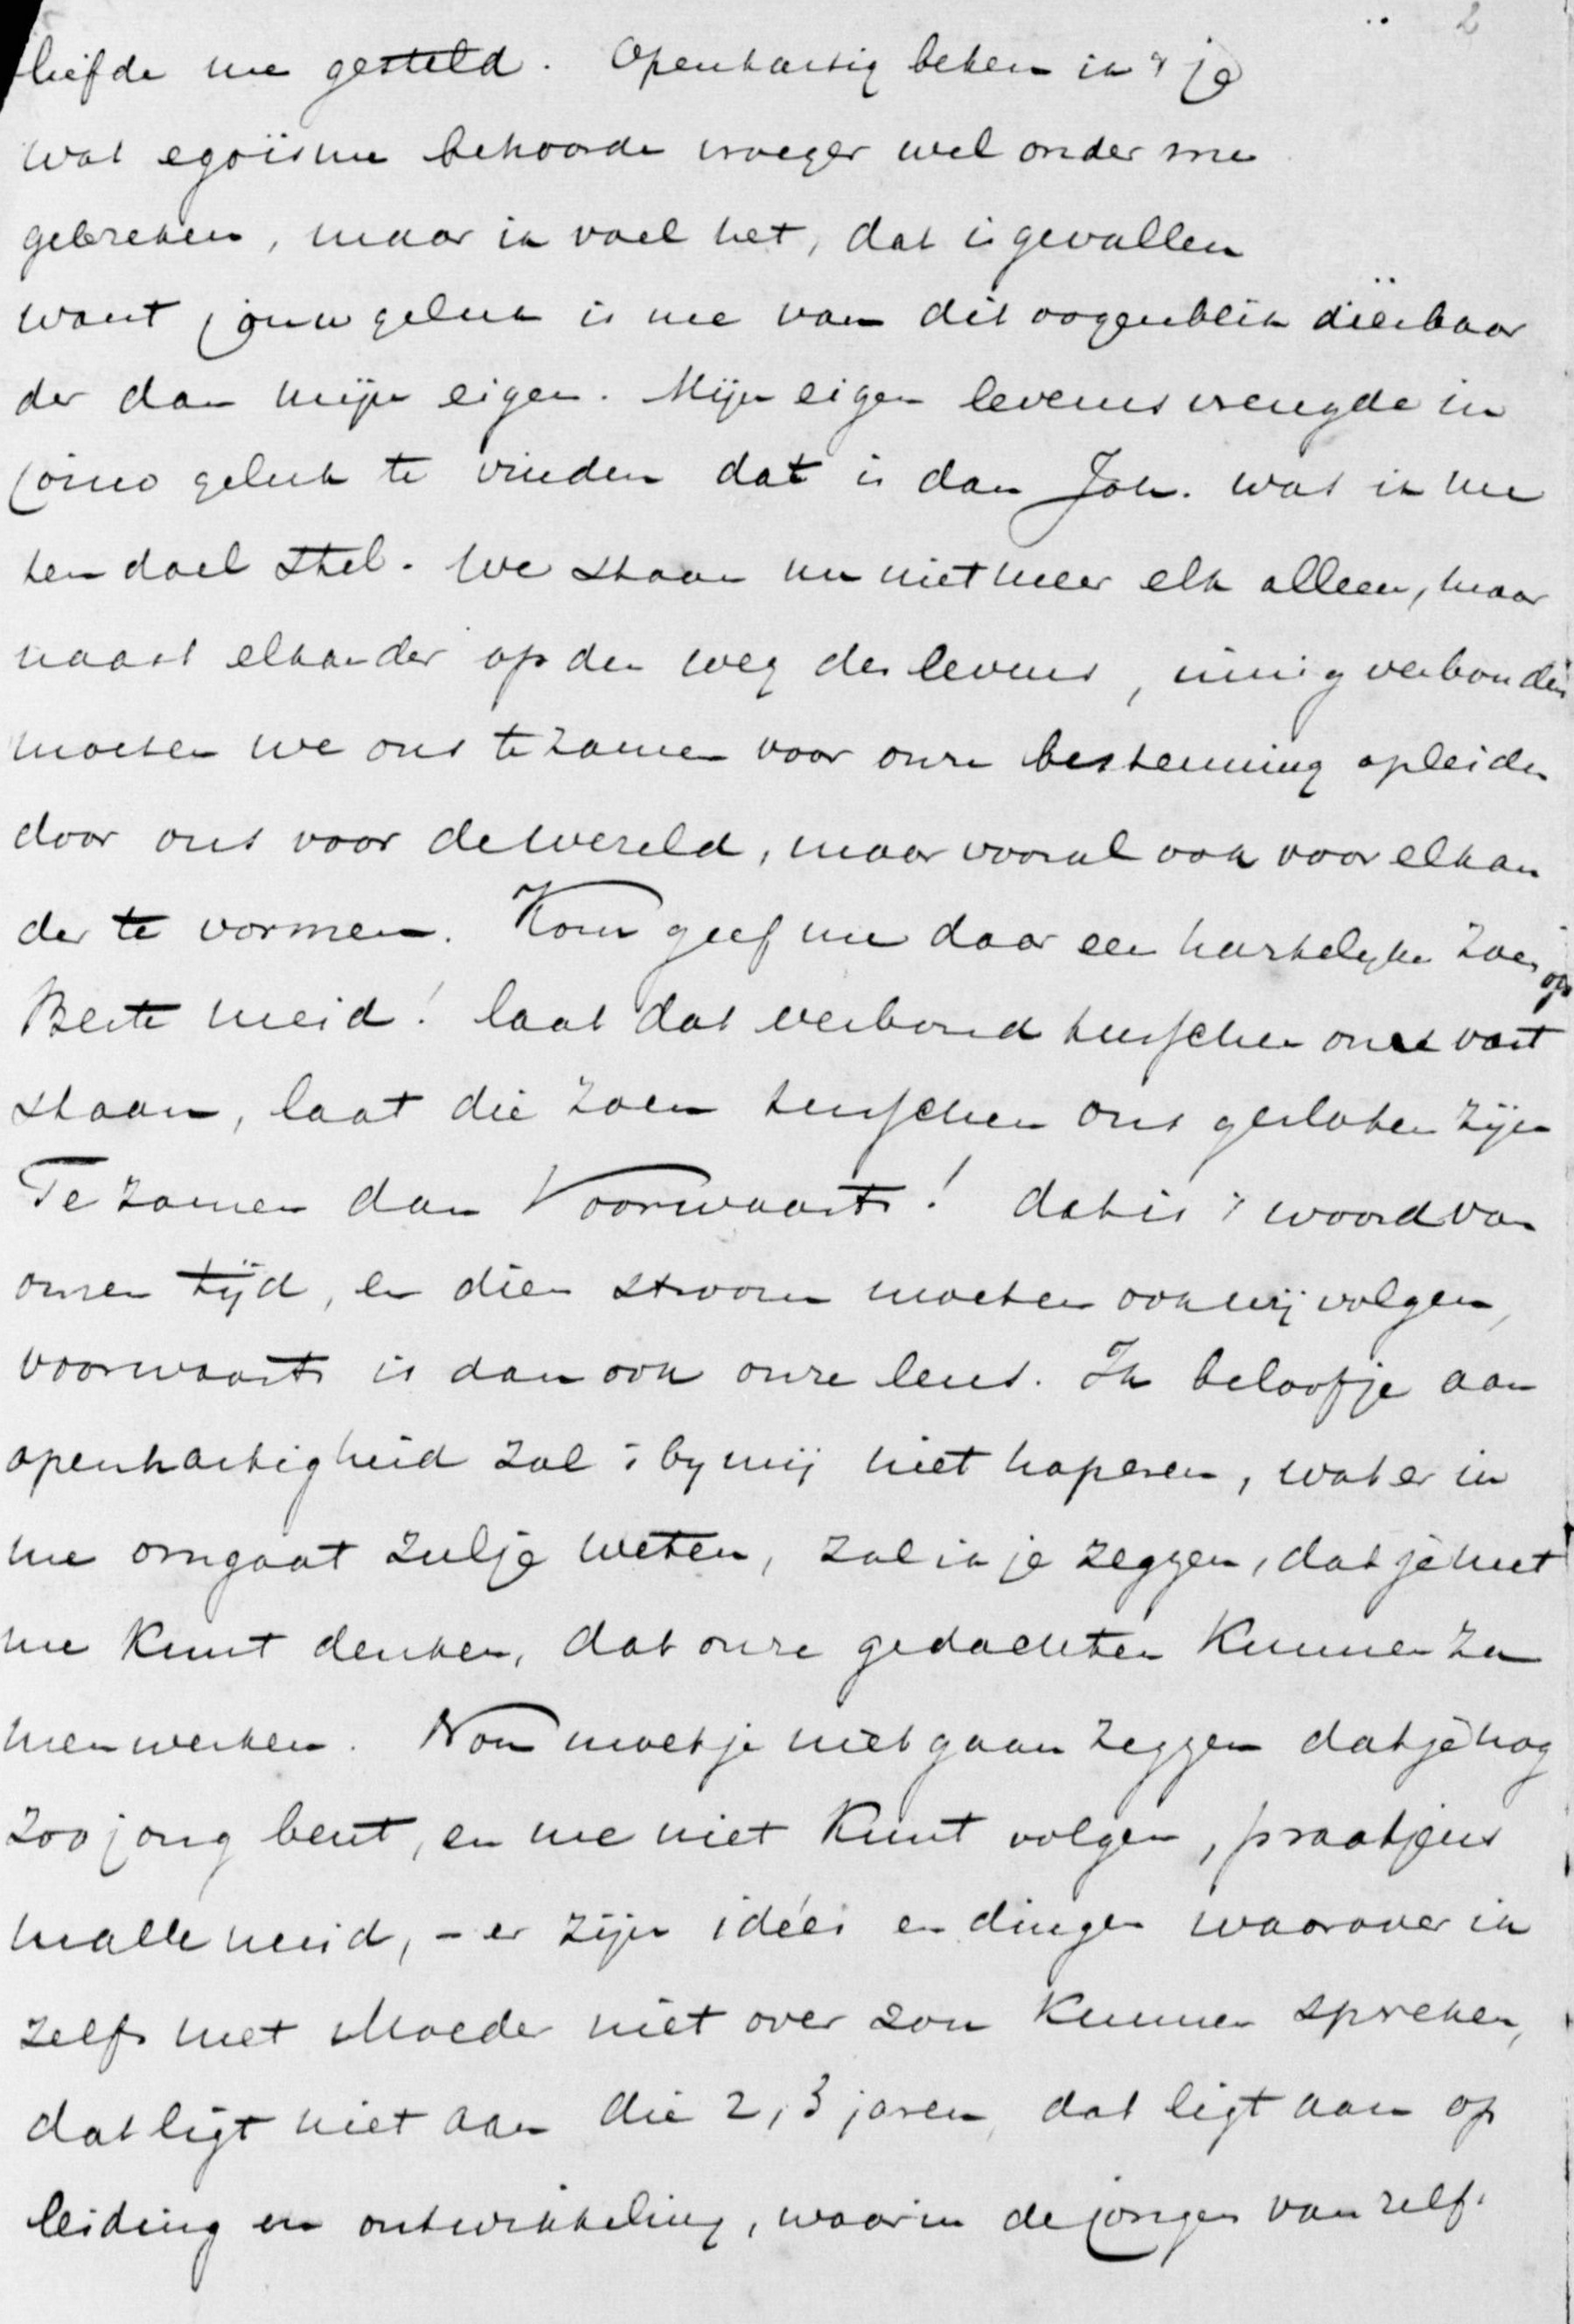 2
liefde me gesteld. Openhartig beken ik 't je
wat egoïsme behoorde vroeger wel onder me
gebreken, maar ik voel het, dat is gevallen
want jouw geluk is me van dit oogenblik dierbaar
der dan mijn eigen. Mijn eigen levensvreugde in
jouw geluk te vinden dat is dan Joh. wat ik me
ten doel stel. We staan nu niet meer elk alleen, maar
naast elkander op den weg des levens, innig verbonden
moeten we ons te zamen voor onze bestemming opleiden
door ons voor de wereld, maar vooral ook voor elkan
der te vormen. Kom geef me daar een hartelyke zoen op
Beste meid! laat dat verbond tusschen ons vast
staan, laat die zoen tusschen ons gesloten zijn
Te zamen dan Voorwaarts! dat is 't woord van
onzen tijd, en dien stroom moeten ook wij volgen,
voorwaarts is dan ook onze leus. Ik beloof je aan
openhartigheid zal 't by mij niet haperen, wat er in
me omgaat zul je weten, zal ik je zeggen, dat je met
me kunt denken, dat onze gedachten kunnen za
menwerken. Nou moet je niet gaan zeggen dat je nog
zoo jong bent, en me niet kunt volgen, praatjens
malle meid, - er zijn idées en dingen waarover ik
zelfs met Moeder niet over zou kunnen spreken,
dat ligt niet aan die 2, 3 jaren, dat ligt aan op
leiding en ontwikkeling, waarin de jonger van zelf